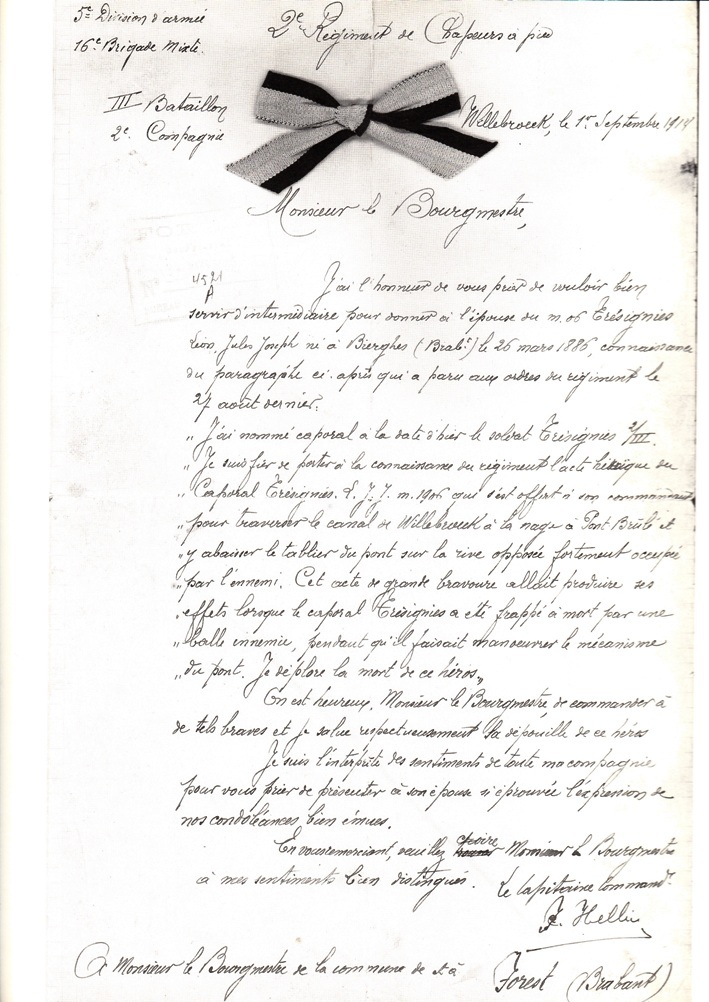 5e Division d'armée
16e Brigade Mixte.
2e Régiment de Chasseurs à pied
III Bataillon
2e Compagnie
Willebroeck, le 1r Septembre 1914
Monsieur le Bourgmestre,
4521
A
J'ai l'honneur de vous prier de vouloir bien
servir d'intermédiaire pour donner à l'épouse du m. 06 Trésignies
Léon, Jules Joseph né à Bierghes (Brabt) le 26 mars 1886, connaissance
du paragraphe ci-après qui a paru aux ordres du régiment le
27 août dernier:
„ J'ai nommé caporal à la date d'hier le soldat Trésignies 2/III.
„ Je suis fier de porter à la connaissance du régiment l'acte héroïque du
„ Caporal Trésignies. L. J. J. m. 1906 qui s'est offert à son commandant
„ pour traverser le canal de Willebroeck à la nage à Pont Brûlé et
„ y abaisser le tablier du pont sur la rive opposée fortement occupée
„ par l'ennemi. Cet acte de grande bravoure allait produire ses
„ effets lorsque le caporal Trésignies a été frappé à mort par une
„ balle ennemie, pendant qu'il faisait manoeuvrer le mécanisme
„ du pont. Je déplore la mort de ce héros„
On est heureux, Monsieur le Bourgmestre, de commander à
de tels braves et je salue respectueusement la dépouille de ce héros
Je suis l'interprète des sentiments de toute ma compagnie
pour vous prier de présenter à son épouse si éprouvée l'expression de
nos condoléances bien émues.
En vous remerciant, veuillez croire Monsieur le Bourgmestre
à mes sentiments bien distingués. Le Capitaine Command.
Hellin
A Monsieur le Bourgmestre de la commune de et à Forest (Brabant)